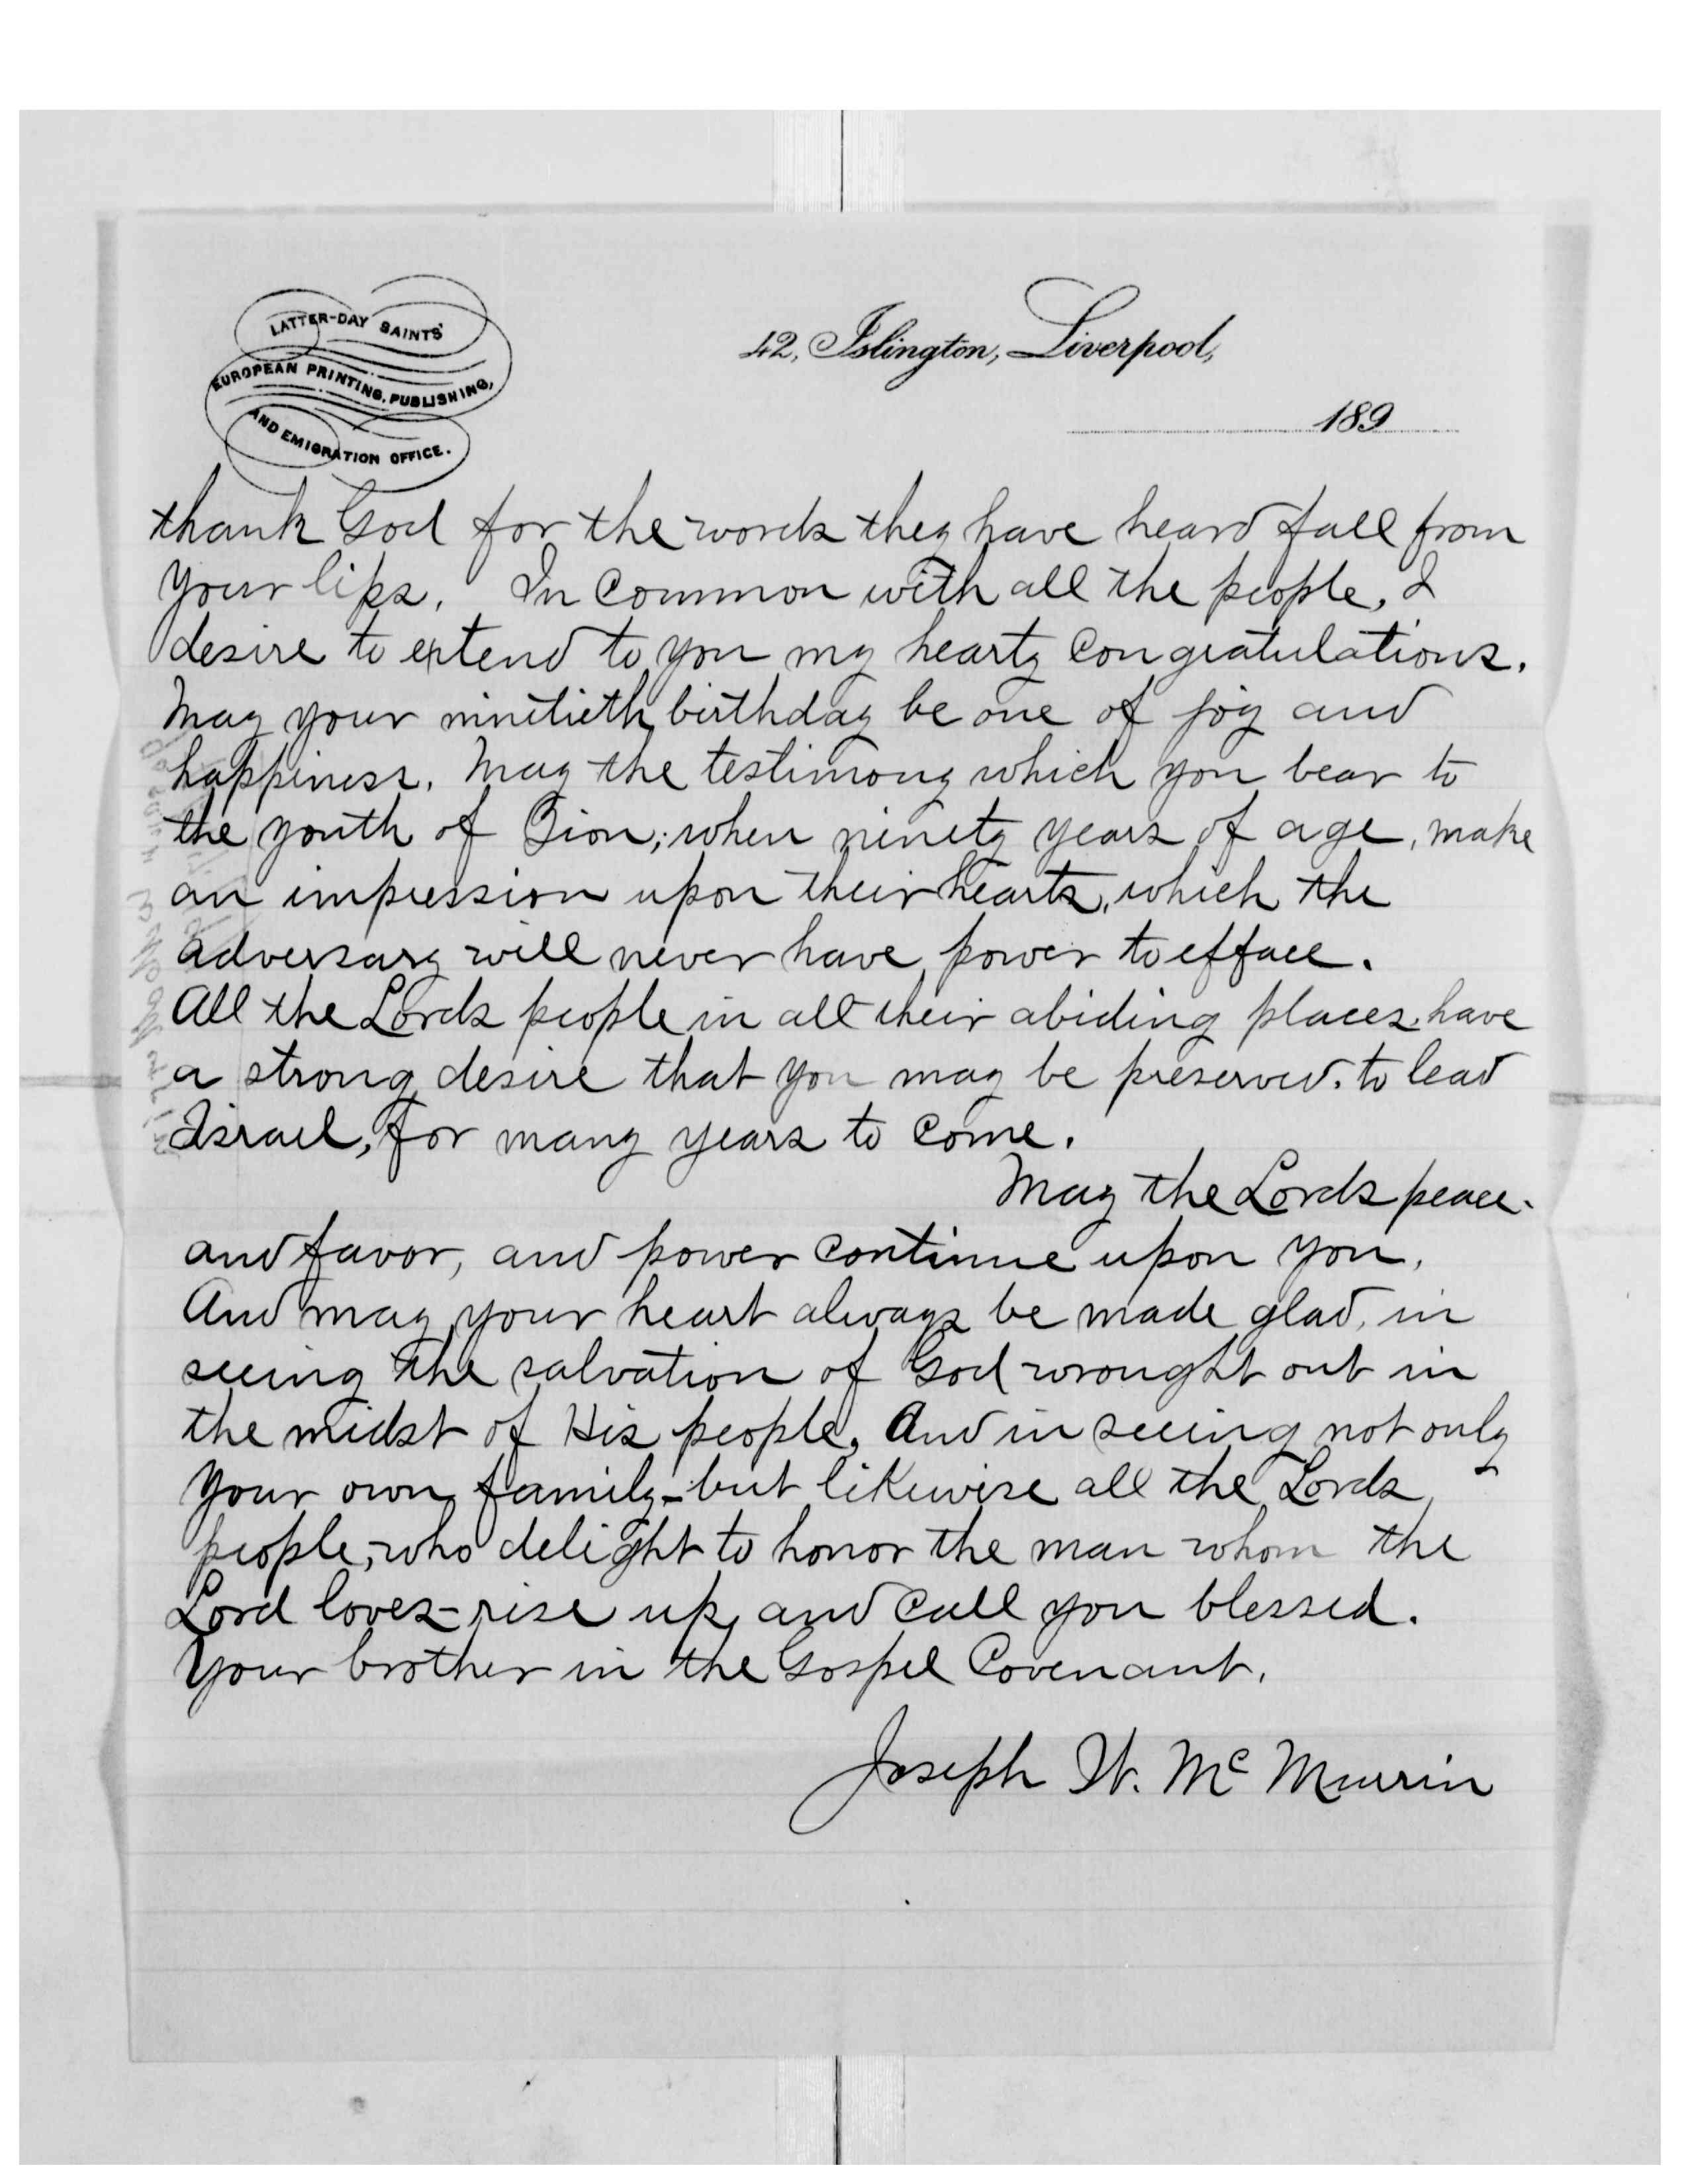 LATTER-DAY SAINTS'
EUROPEAN PRINTING, PUBLISHING,
AND EMIGRATION OFFICE.
42, Islington, Liverpool,
189
thank God for the words they have heard fall from
your lips. In Common with all the people, I
desire to extend to you my hearty Congratulations.
May your ninitieth birthday be one of joy and
happiness. May the testimony which you bear to
the youth of Zion; when ninety years of age, make
an impression upon their hearts, which the
adversary will never have power to efface.
All the Lords people in all their abiding places, have
a strong desire that you may be preserved, to lead
Israel, for many years to come.
May the Lords peace
and favor, and power continue upon you,
And may your heart always be made glad, in
seeing the salvation of God wrought out in
the midst of His people, And in seeing not only
your own family - but likewise all the Lords
people, who delight to honor the man whom the
Lord loves - rise up, and call you blessed.
Your brother in the Gospel Covenant.
Joseph W. McMurrin